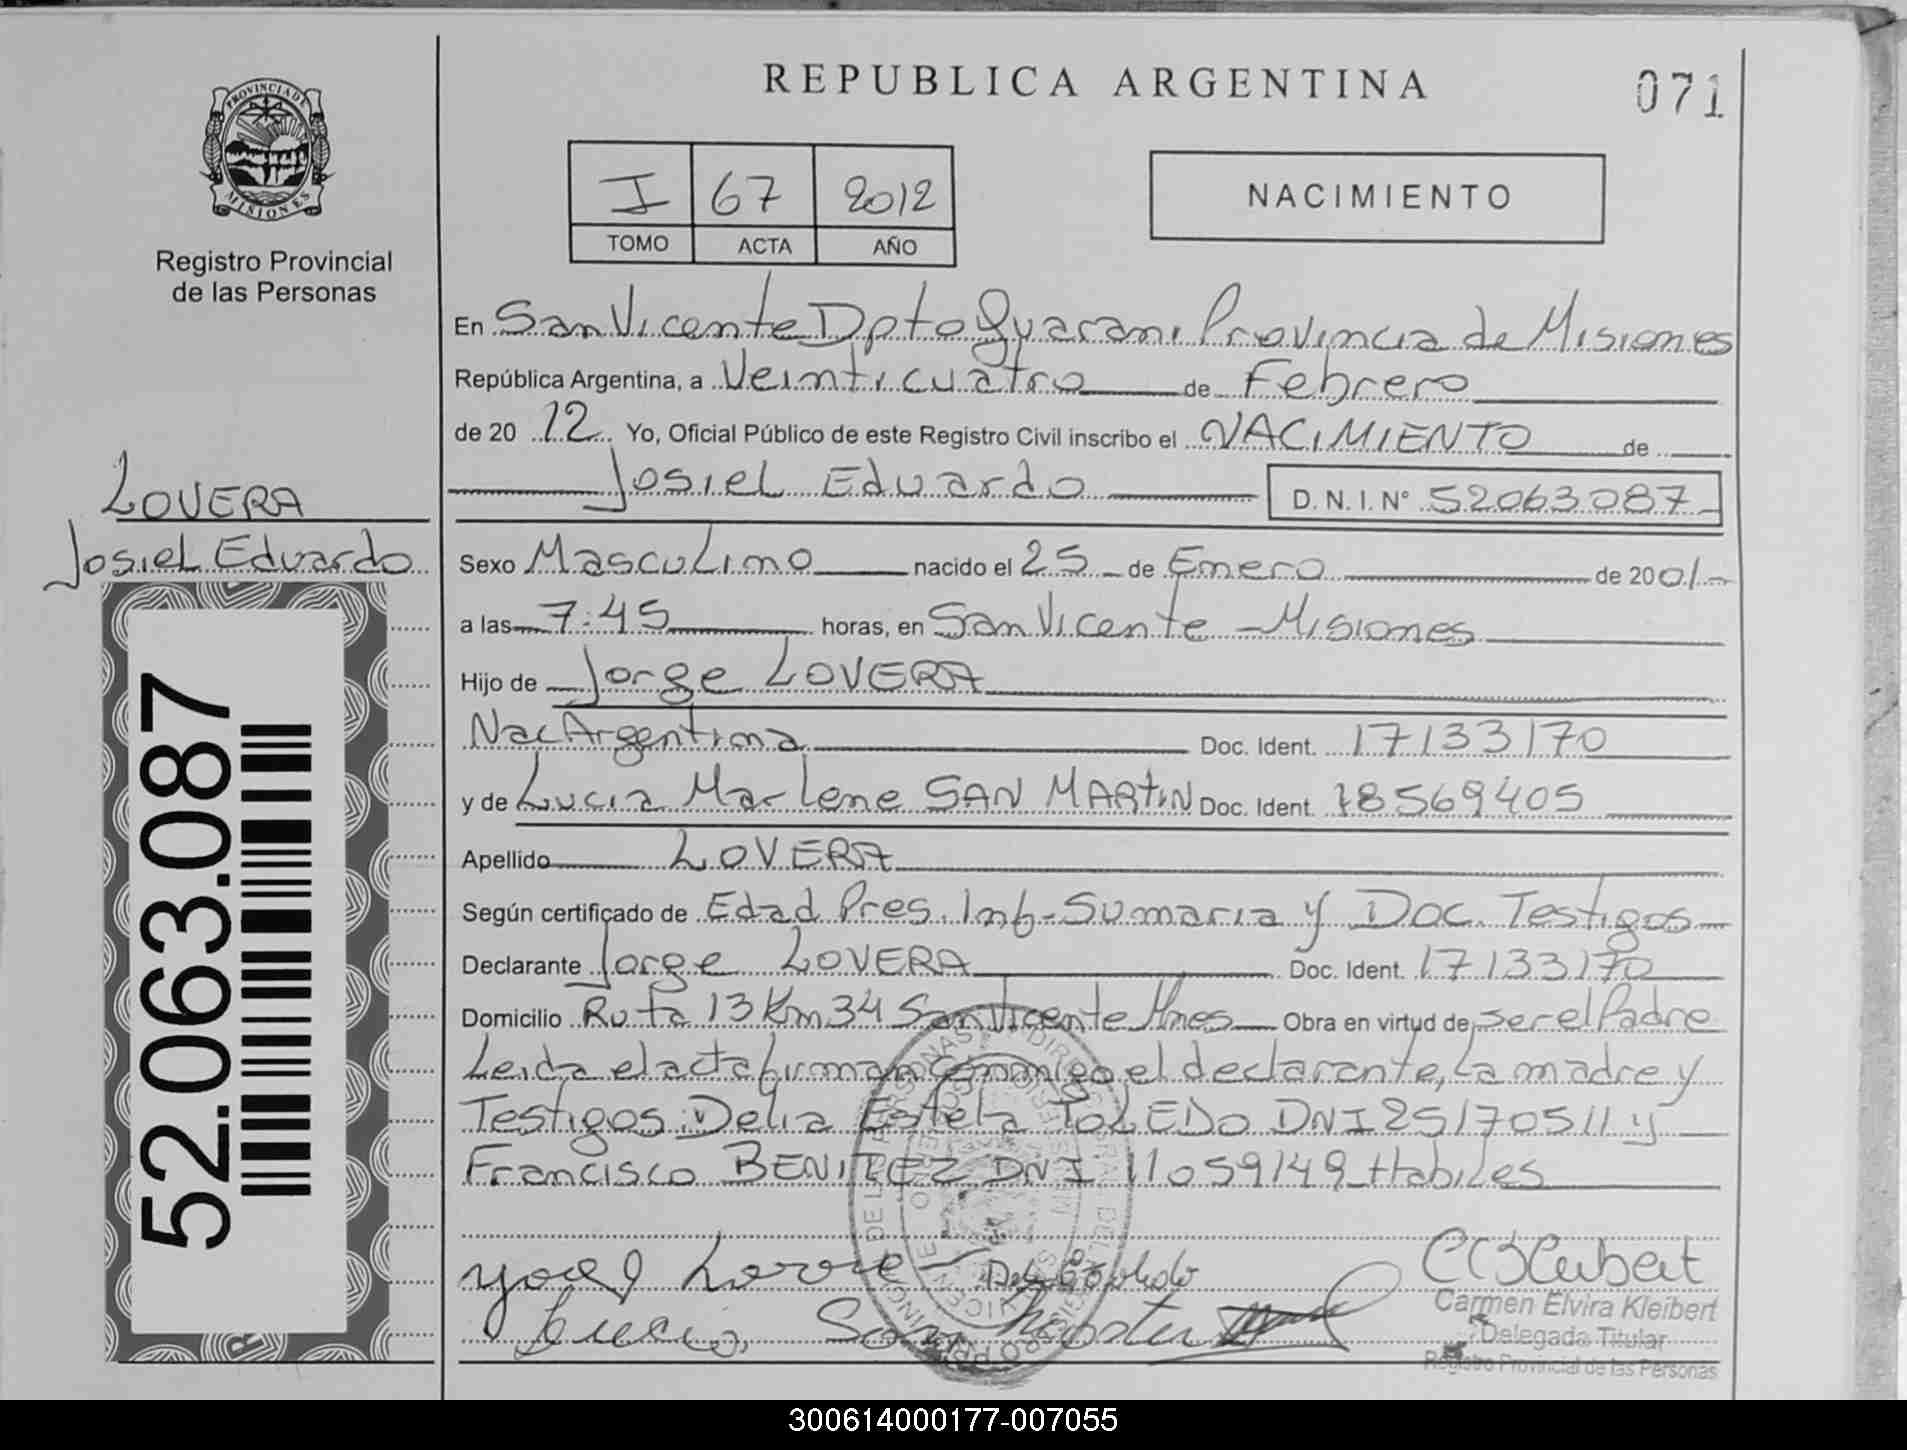 REPUBLICA ARGENTINA
071
PROVINCIA DE
MISIONES
Registro Provincial
de las Personas
I 67 2012
TOMO ACTA AÑO
NACIMIENTO
En San Vicente Dpto Guarani Provincia de Misiones
República Argentina, a Veinticuatro de Febrero
de 20 12 Yo, Oficial Público de este Registro Civil inscribo el NACIMIENTO de
Josiel Eduardo D.N.I. N° 52063087
LOVERA
Josiel Eduardo
52.063.087
Sexo Masculino nacido el 25 de Enero de 20 01
a las 7:45 horas, en San Vicente - Misiones
Hijo de Jorge LOVERA
Nac Argentina Doc. Ident. 17133170
y de Lucia Marlene SAN MARTIN Doc. Ident. 18569405
Apellido LOVERA
Según certificado de Edad Pres. Inf-Sumaria y Doc. Testigos
Declarante Jorge LOVERA Doc. Ident. 17133170
Domicilio Ruta 13 Km 34 San Vicente Mnes Obra en virtud de ser el Padre
Leida el acta firman conmigo el declarante, la madre y
Testigos: Delia Estela TOLEDO DNI 25170511 y
Francisco BENITEZ DNI 11059149 Habiles
Carmen Elvira Kleibert
Delegada Titular
Registro Provincial de las Personas
300614000177-007055